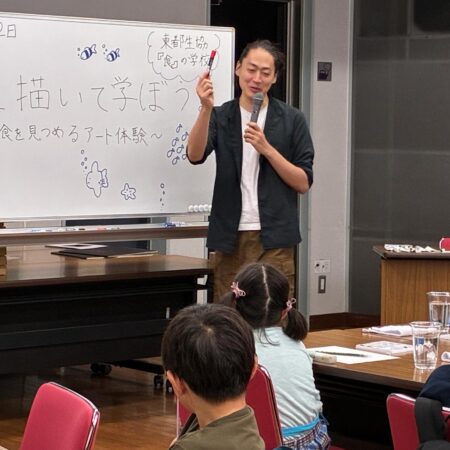 2日
東都生協
『食』の学校
描いて学ぼう
食を見つめるアート体験〜